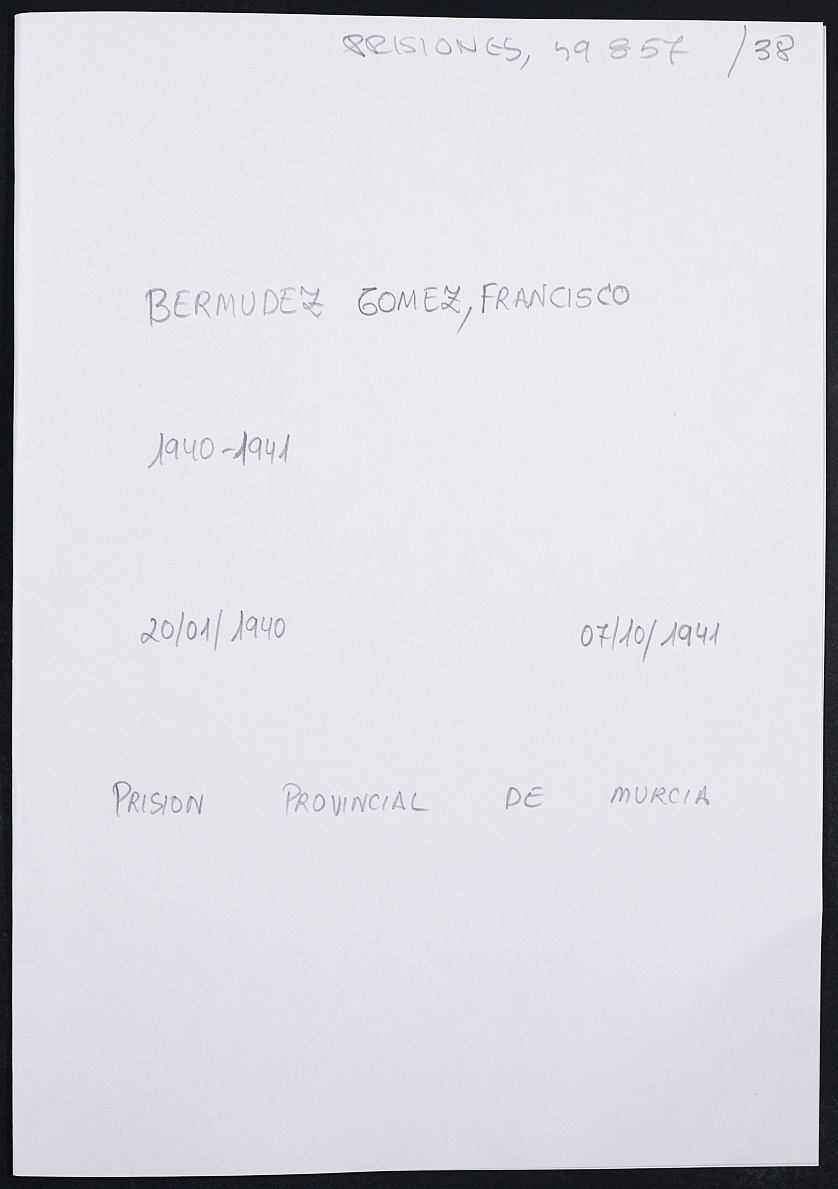 PRISIONES, 49857 /38
BERMUDEZ GOMEZ, FRANCISCO
1940-1941
20/01/1940 07/10/1941
PRISION PROVINCIAL DE MURCIA